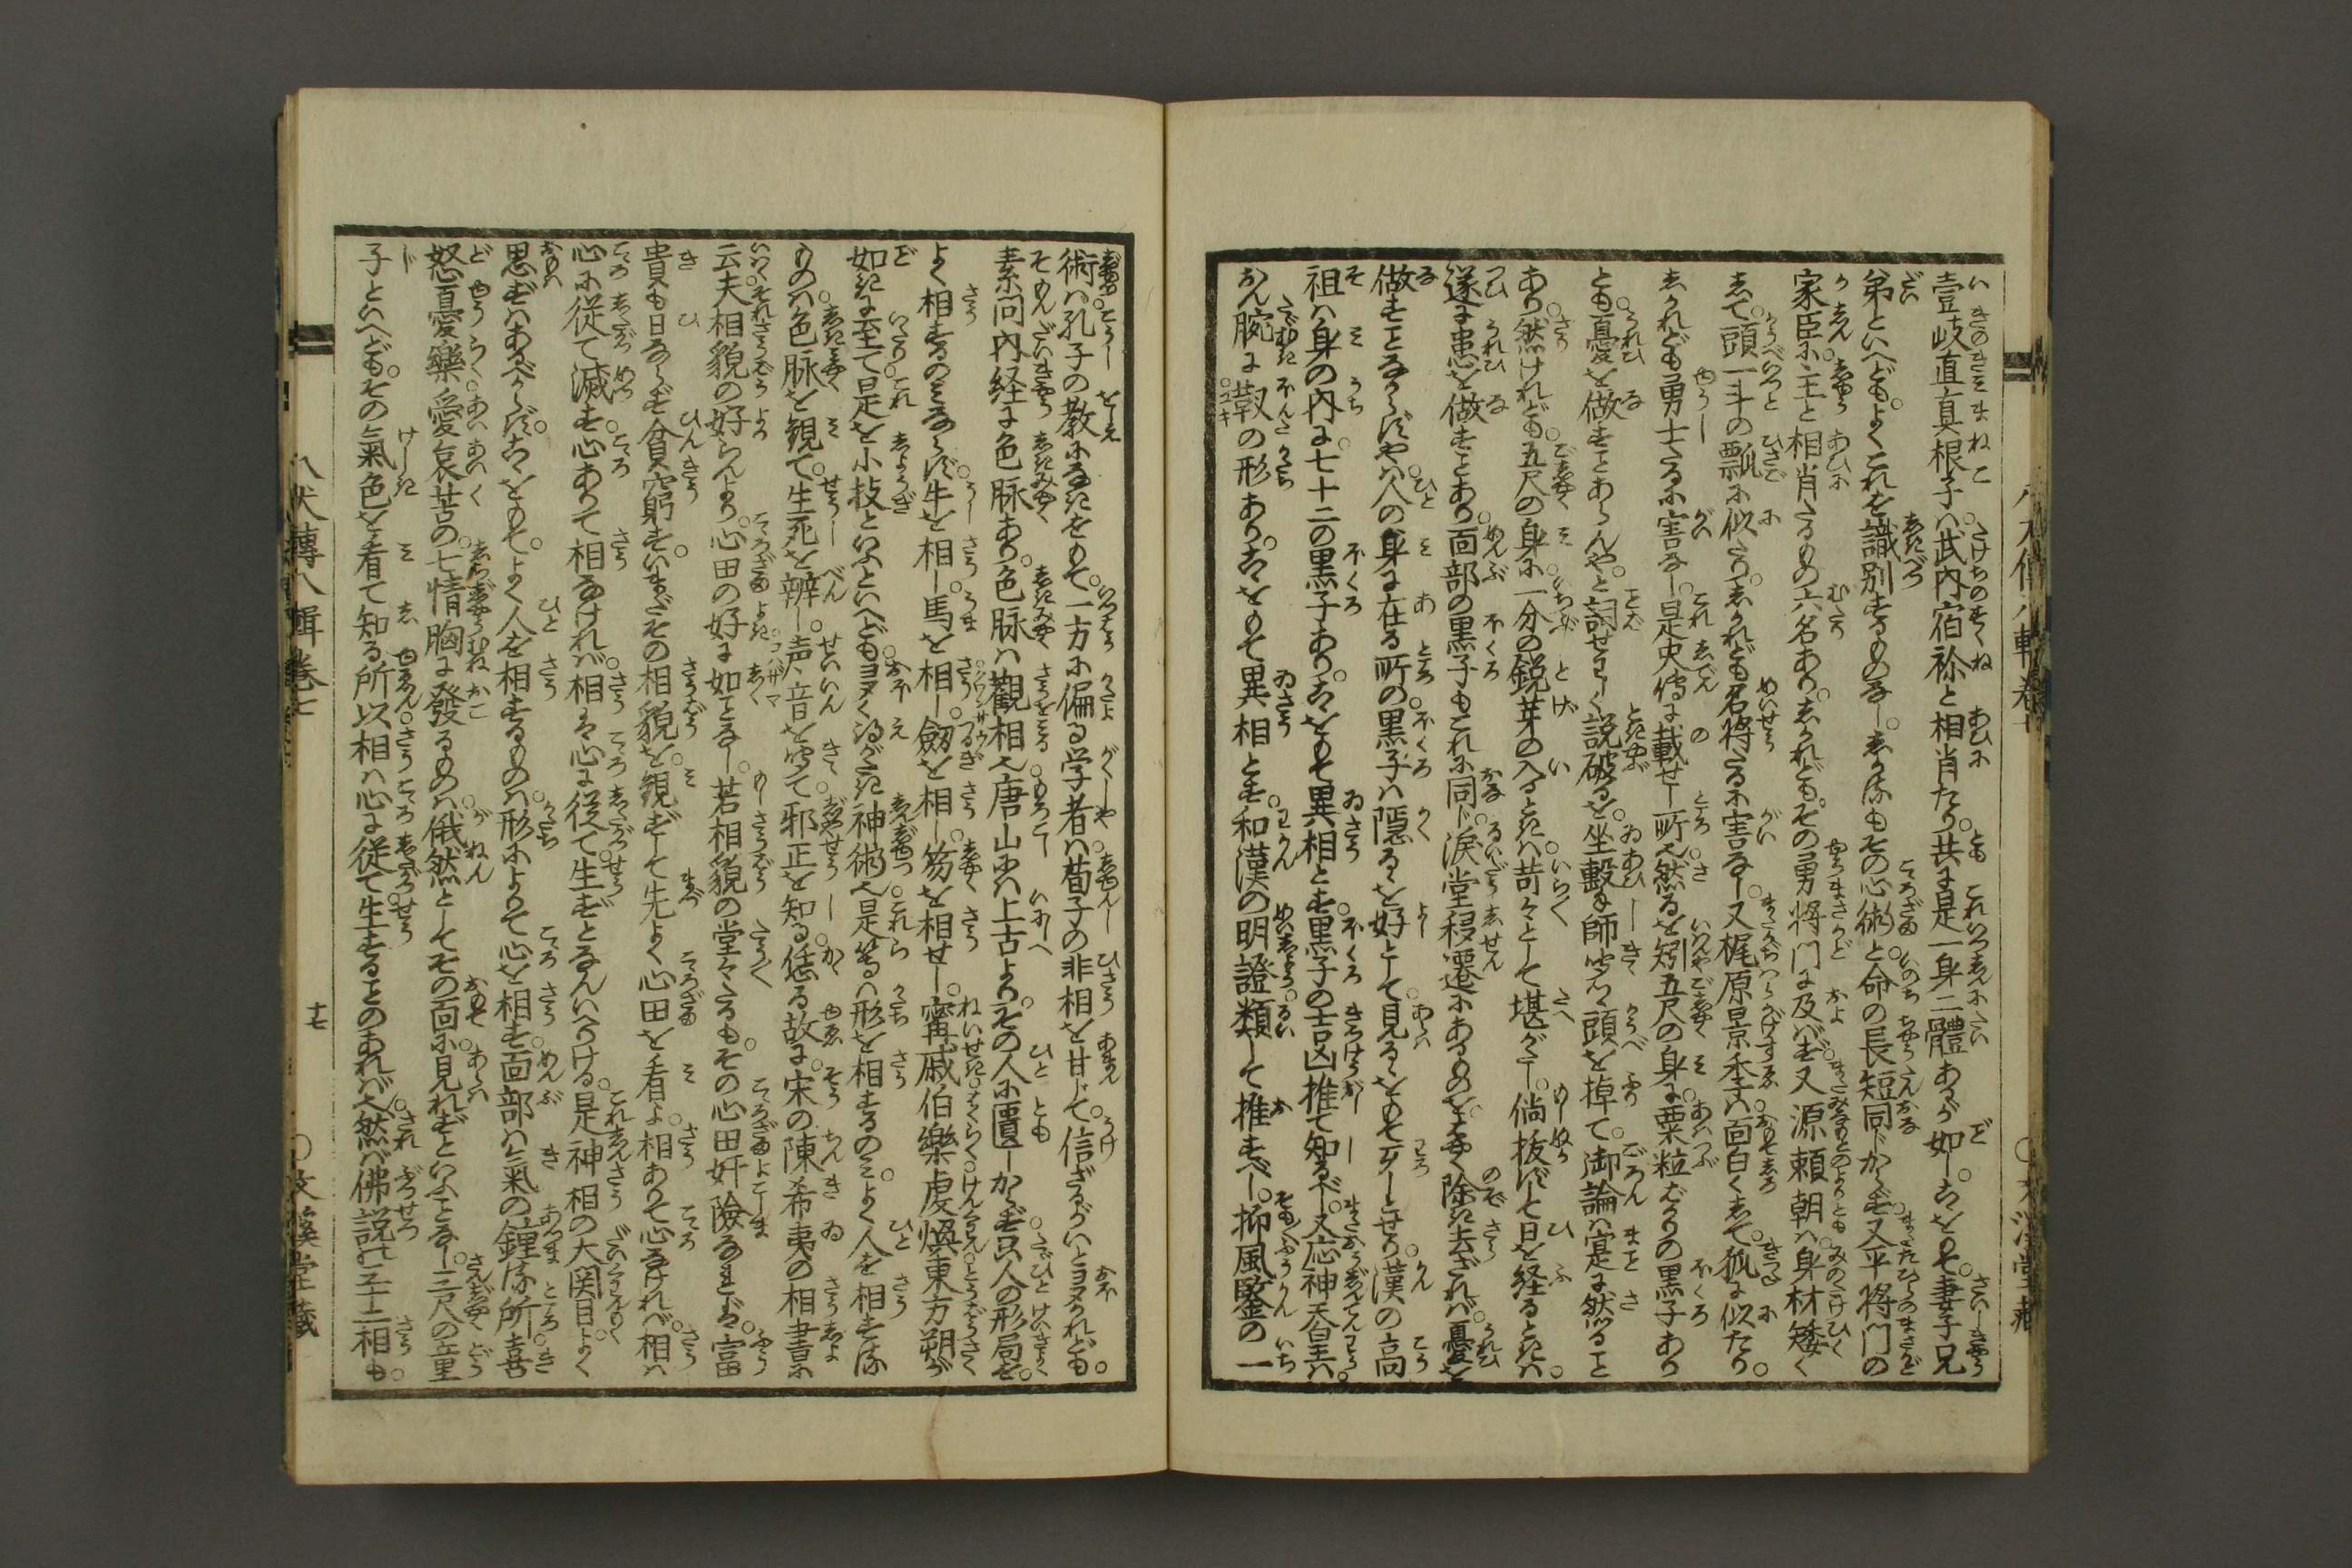 壹岐直真根子ハ。武内宿祢と相肖たり。共に是一身二體あるが如し。こをもて。妻子兄
弟といへども。よくこれを識別するものなし。しかれどもその心術と。命の長短同じからず。又平將門の
家臣に。主と相肖たるもの六名あり。しかれども。その勇將門に及ばず。又源頼朝ハ。身材矮く
して。頭一斗の瓢に似たり。しかれども名將たるに害なし。又梶原景季ハ。面白くして。狐に似たり。
しかれども勇士たるに害なし。是史傳に載せし所也。然るを矧五尺の身に。粟粒ばかりの黒子あり
とも。憂を做すことあらんや。と詞せわしく説破るを。坐撃師聞つゝ頭を掉て。御論ハ寔に然ること
あり。然けれども。五尺の身に。一分の鋭芽の入るときハ。苛々として堪がたし。倘抜ずして日を経るときハ。
遂に患を做すことあり。面部の黒子もこれに同じ。涙堂移遷にあるものを。とく除き去ざれバ。憂を
做すことなからずや。ハ人の身に在る所の。黒子ハ隠るゝを好として。見るゝをもてわろしとせり。漢の高
祖ハ身の内に。七十二の黒子あり。こをもて異相とす。黒子の吉凶推て知るべし。又応神天皇ハ。
おん腕に靫の形あり。こをもて異相とす。和漢の明證。類して推すべし。抑風鑒の一
術ハ。孔子の教になきをもて。一方に偏る学者ハ。荀子の非相を甘じて。信ざるがいと夛かれども。
素問内経に色脉あり。色脉ハ観相也。唐山にハ上古より。その人に匱しからず。只人の形局を。
よく相するのみならず。牛を相し。馬を相し。劔を相し。笏を相せし。甯戚伯樂虔煥東方朔が
如きに至て。是を小技といふといへども。夛く得がたき神術也。是等ハ形を相するのみ。よく人を相する
ものハ。色脉を観て。生死を辨し。声音を聞て。邪正を知る。恁る故に。宋の陳希夷の相書に
云。夫相貌の好らんより。心田の好に如となし。若相貌の堂々たるも。その心田奸險なるときハ。富
貴も日ならず貧窮す。いまだその相貌を。観ずして先よく心田を看よ。相ありて心なけれバ。相ハ
心に従て滅す。心ありて相なけれバ。相又心に従て。生ずとなんいへりける。是神相の大関目。よく
思ずハあるべからず。こをもて。よく人を相するものハ。形によりて心を相す。面部ハ氣の鐘る所。喜
怒憂樂愛哀苦の。七情胸に發るものハ。俄然としてその面に。見れずといふことなし。三尺の童
子といへども。その氣色を看て知る所以。相ハ心に従て。生ずるとのあれバ也。然バ佛説の三十二相も。
八犬傳八輯巻七
十七
○文溪堂藏